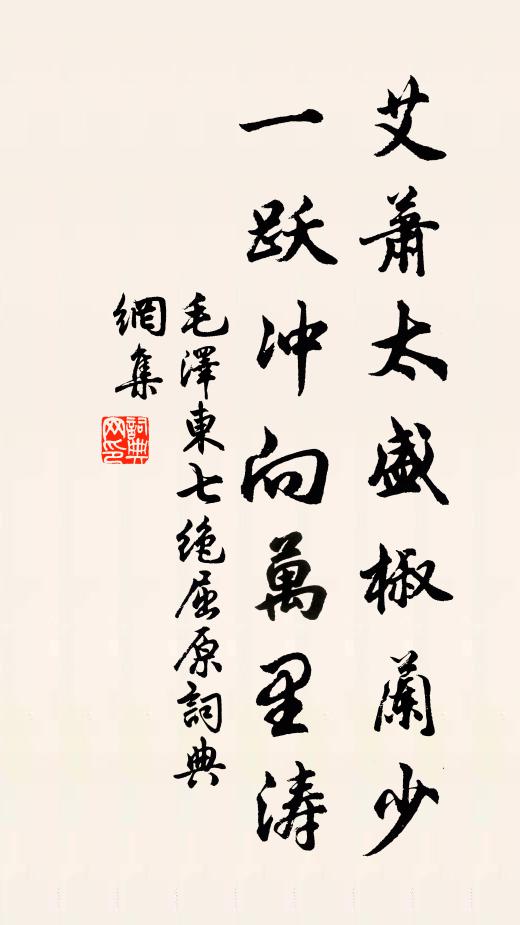 艾蕭太盛椒蘭少
一跃冲向萬里涛
毛澤東七绝屈原詞典
網集
詞典
网印